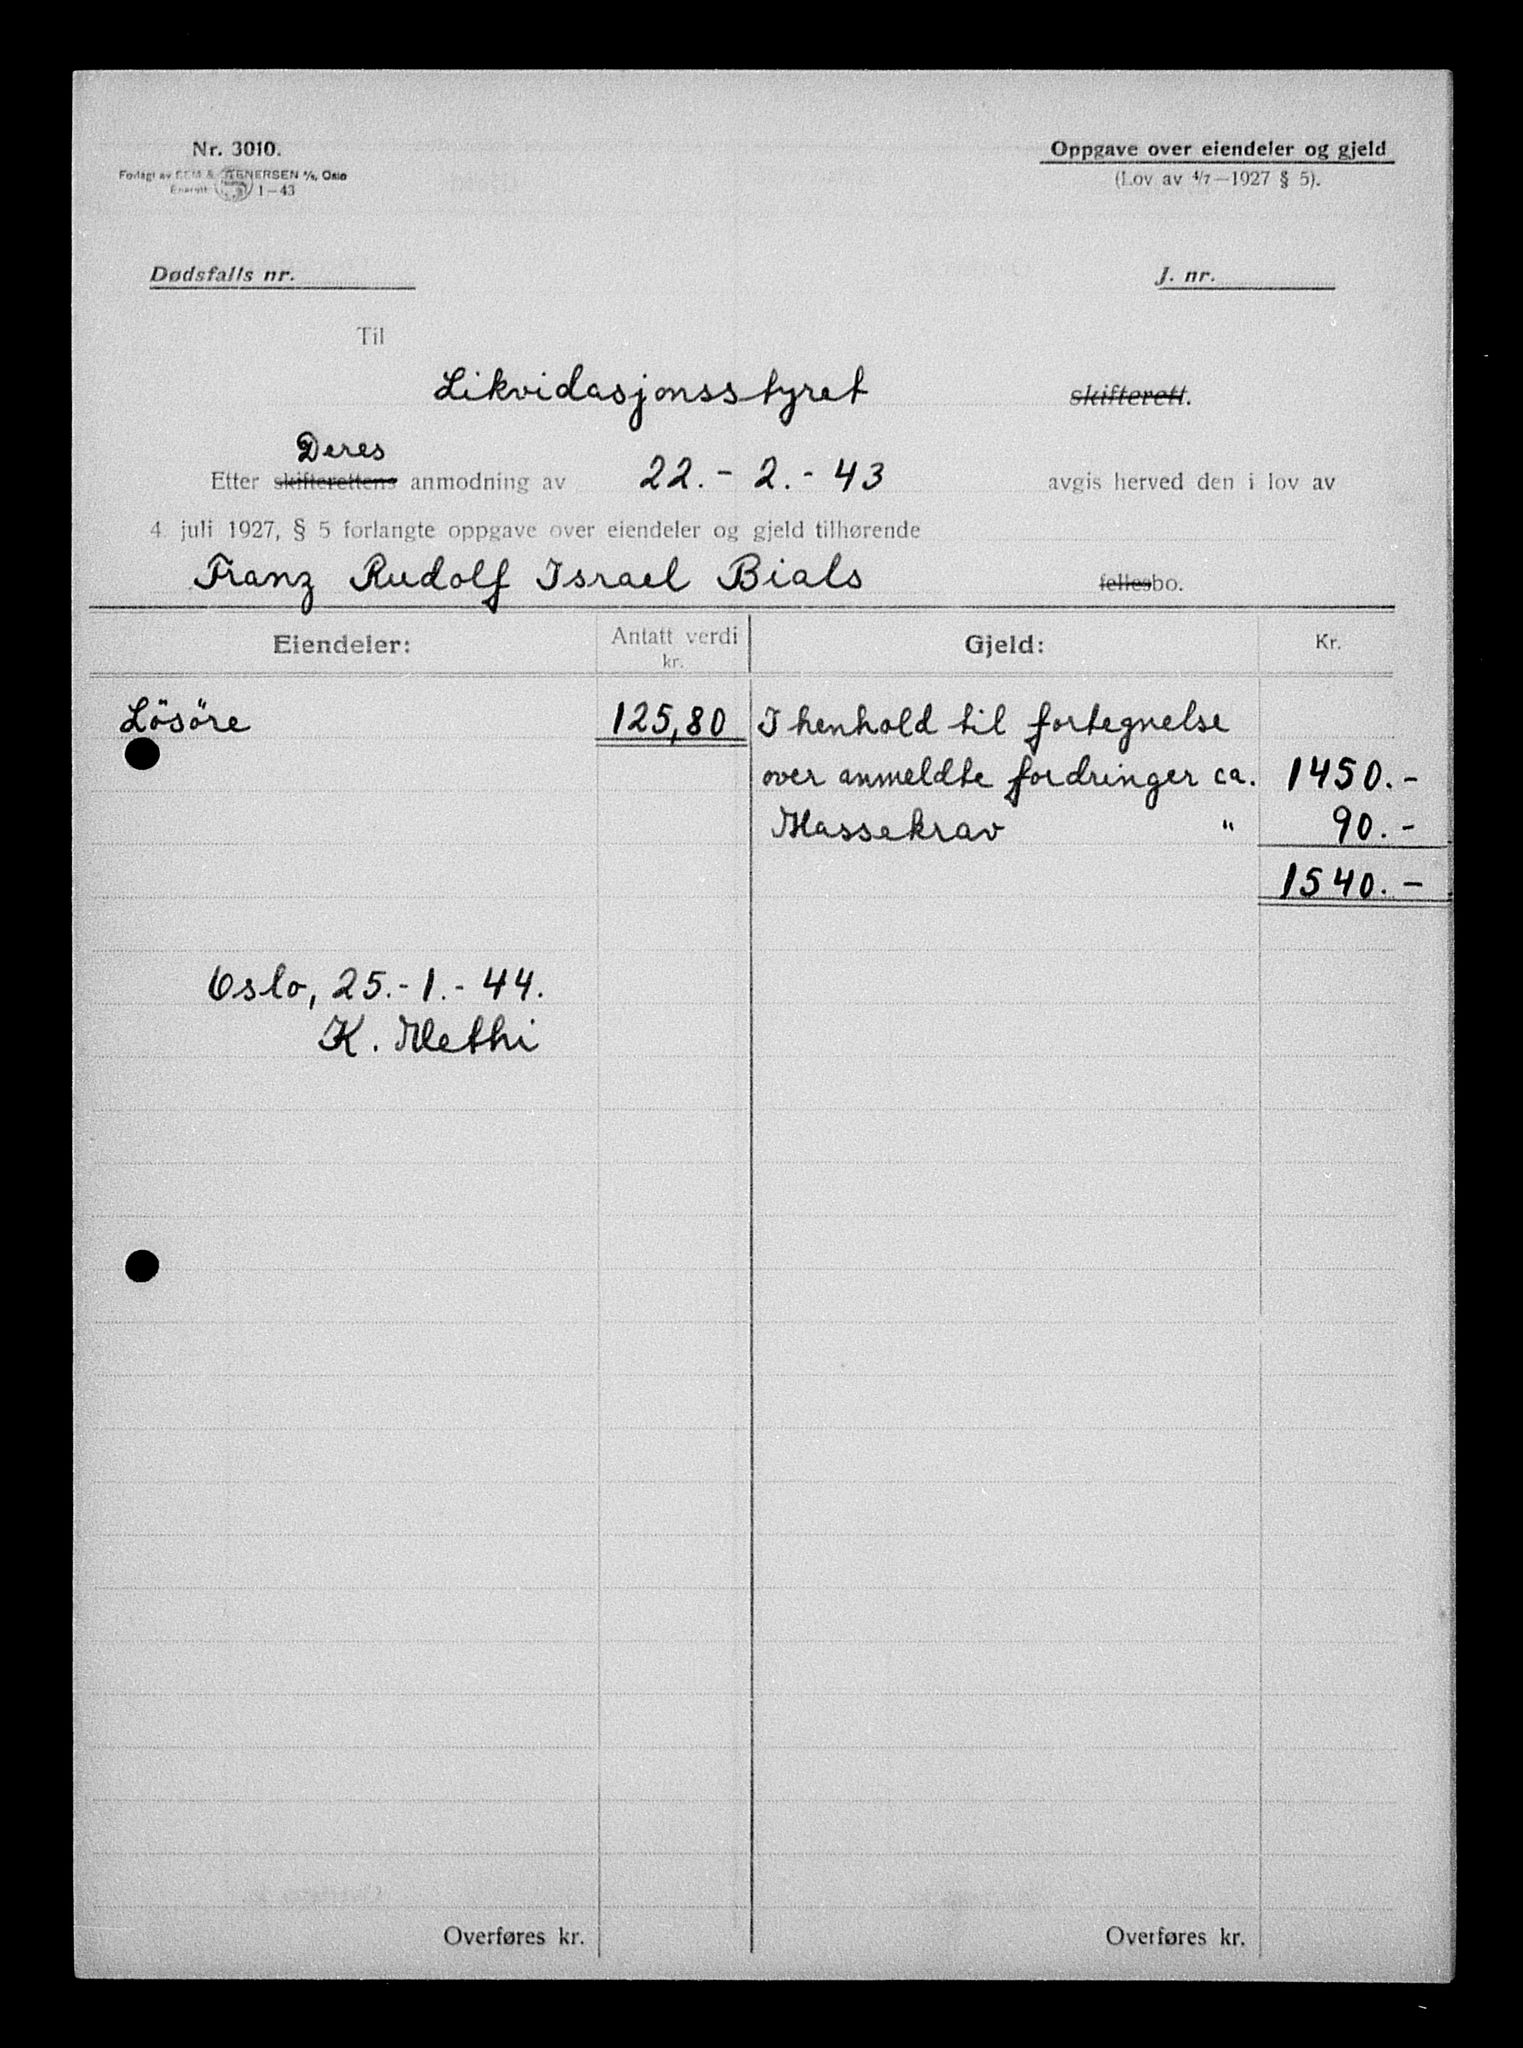 Nr. 3010.
Forlagt av SEM & STENERSEN A/S, Oslo
Enerett 1—43
Oppgave over eiendeler og gjeld
(Lov av 4/7—1927 § 5).
Dødsfalls nr.
J. nr.
Til
Likvidasjonsstyret skifterett.
Deres
Etter skifterettens anmodning av 22.-2.-43 avgis herved den i lov av
4. juli 1927, § 5 forlangte oppgave over eiendeler og gjeld tilhørende
Franz Rudolf Israel Bials fellesbo.
Eiendeler: Antatt verdi kr. Gjeld: Kr.
Lösöre 125,80 I henhold til fortegnelse
over anmeldte fordringer ca. 1450.-
Massekrav " 90.-
1540.-
Oslo, 25.-1.-44.
K. Methi
Overføres kr. Overføres kr.